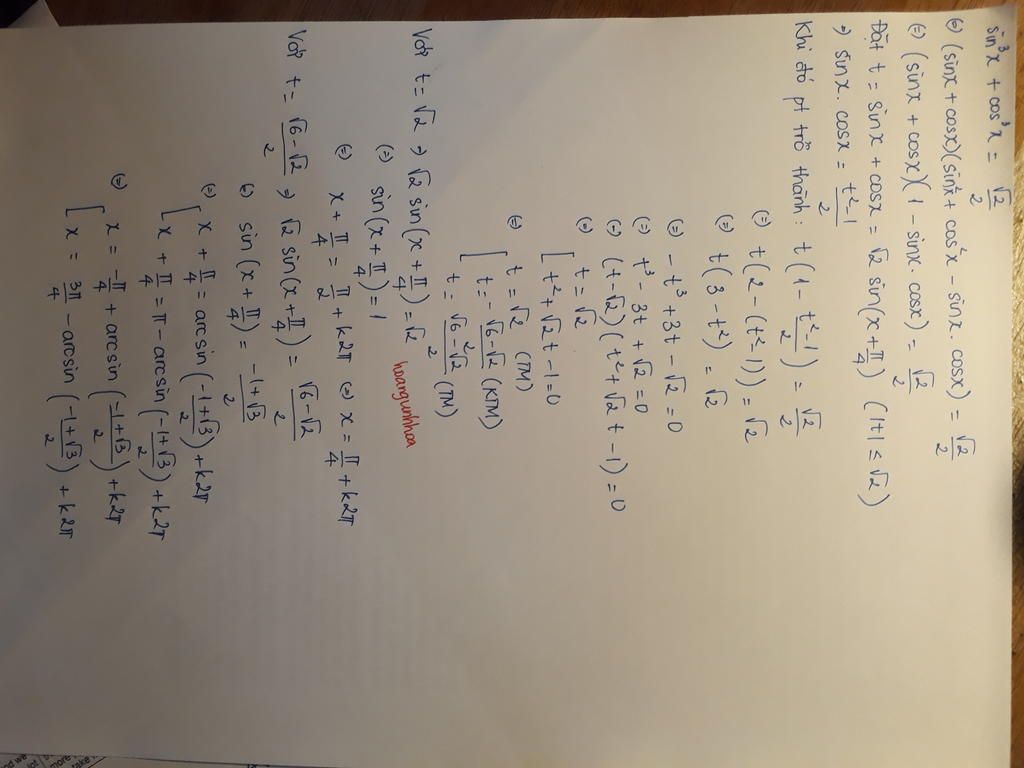 sin³x + cos³x = √2/2
⇔ (sinx + cosx)(sin²x + cos²x - sinx.cosx) = √2/2
⇔ (sinx + cosx)(1 - sinx.cosx) = √2/2
Đặt t = sinx + cosx = √2 sin(x + π/4) (|t| ≤ √2)
⇒ sinx.cosx = (t²-1)/2
Khi đó pt trở thành: t(1 - (t²-1)/2) = √2/2
⇔ t(2 - (t²-1)) = √2
⇔ t(3 - t²) = √2
⇔ -t³ + 3t - √2 = 0
⇔ t³ - 3t + √2 = 0
⇔ (t - √2)(t² + √2t - 1) = 0
⇔ [ t = √2
t² + √2t - 1 = 0
⇔ [ t = √2 (TM)
t = (-√6 - √2)/2 (KTM)
t = (√6 - √2)/2 (TM)
hoangunhhoa
Với t = √2 ⇒ √2 sin(x + π/4) = √2
⇔ sin(x + π/4) = 1
⇔ x + π/4 = π/2 + k2π ⇔ x = π/4 + k2π
Với t = (√6 - √2)/2 ⇒ √2 sin(x + π/4) = (√6 - √2)/2
⇔ sin(x + π/4) = (-1+√3)/2
⇔ [ x + π/4 = arcsin((-1+√3)/2) + k2π
x + π/4 = π - arcsin((-1+√3)/2) + k2π
⇔ [ x = -π/4 + arcsin((-1+√3)/2) + k2π
x = 3π/4 - arcsin((-1+√3)/2) + k2π